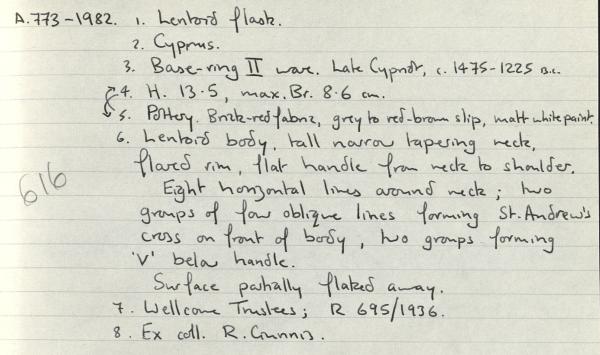 A.773-1982. 1. Lentoid flask.
2. Cyprus.
3. Base-ring II ware. Late Cypriot, c. 1475-1225 B.C.
4. H. 13.5, max. Br. 8.6 cm.
5. Pottery. Brick-red fabric, grey to red-brown slip, matt white paint.
6. Lentoid body, tall narrow tapering neck,
flared rim, flat handle from neck to shoulder.
Eight horizontal lines around neck; two
groups of four oblique lines forming St. Andrew's
cross on front of body, two groups forming
'V' below handle.
Surface partially flaked away.
7. Wellcome Trustees; R 695/1936.
8. Ex coll. R. Gunnis.
616